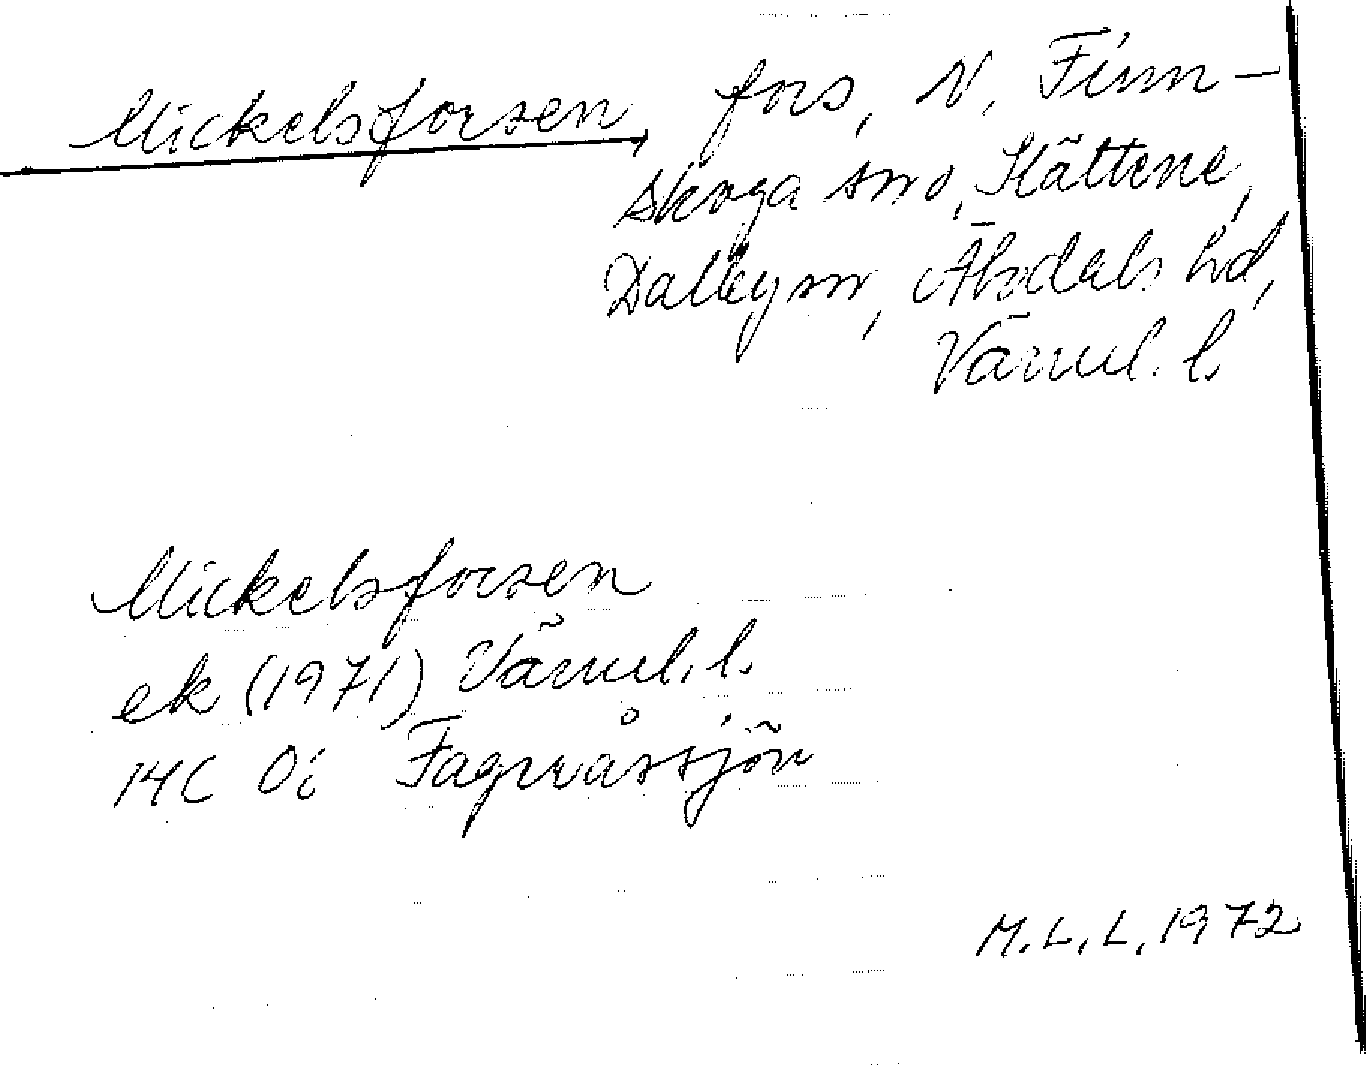 Mickelsforsen, fors, N. Finn-
skoga sn o, Slättene,
Dalby sn, Älvdals hd,
Värml. l.
Mickelsforsen
ek (1971) Värml. l.
14C 0i Fageråssjön
M.L.L. 1972